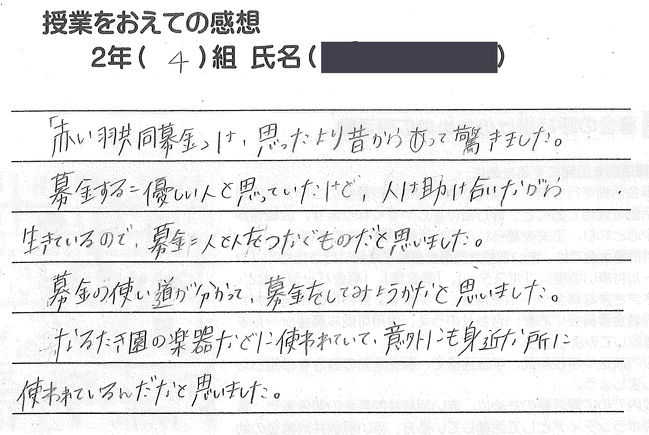 授業をおえての感想
2年( 4 )組 氏名( )
「赤い羽共同募金」は、思ったより昔からあって驚きました。
募金する=優しい人と思っていたけど、人は助け合いながら
生きているので、募金=人と人をつなぐものだと思いました。
募金の使い道が分かって、募金をしてみようかなと思いました。
なるたき園の楽器などに使われていて、意外にも身近な所に
使われているんだなと思いました。